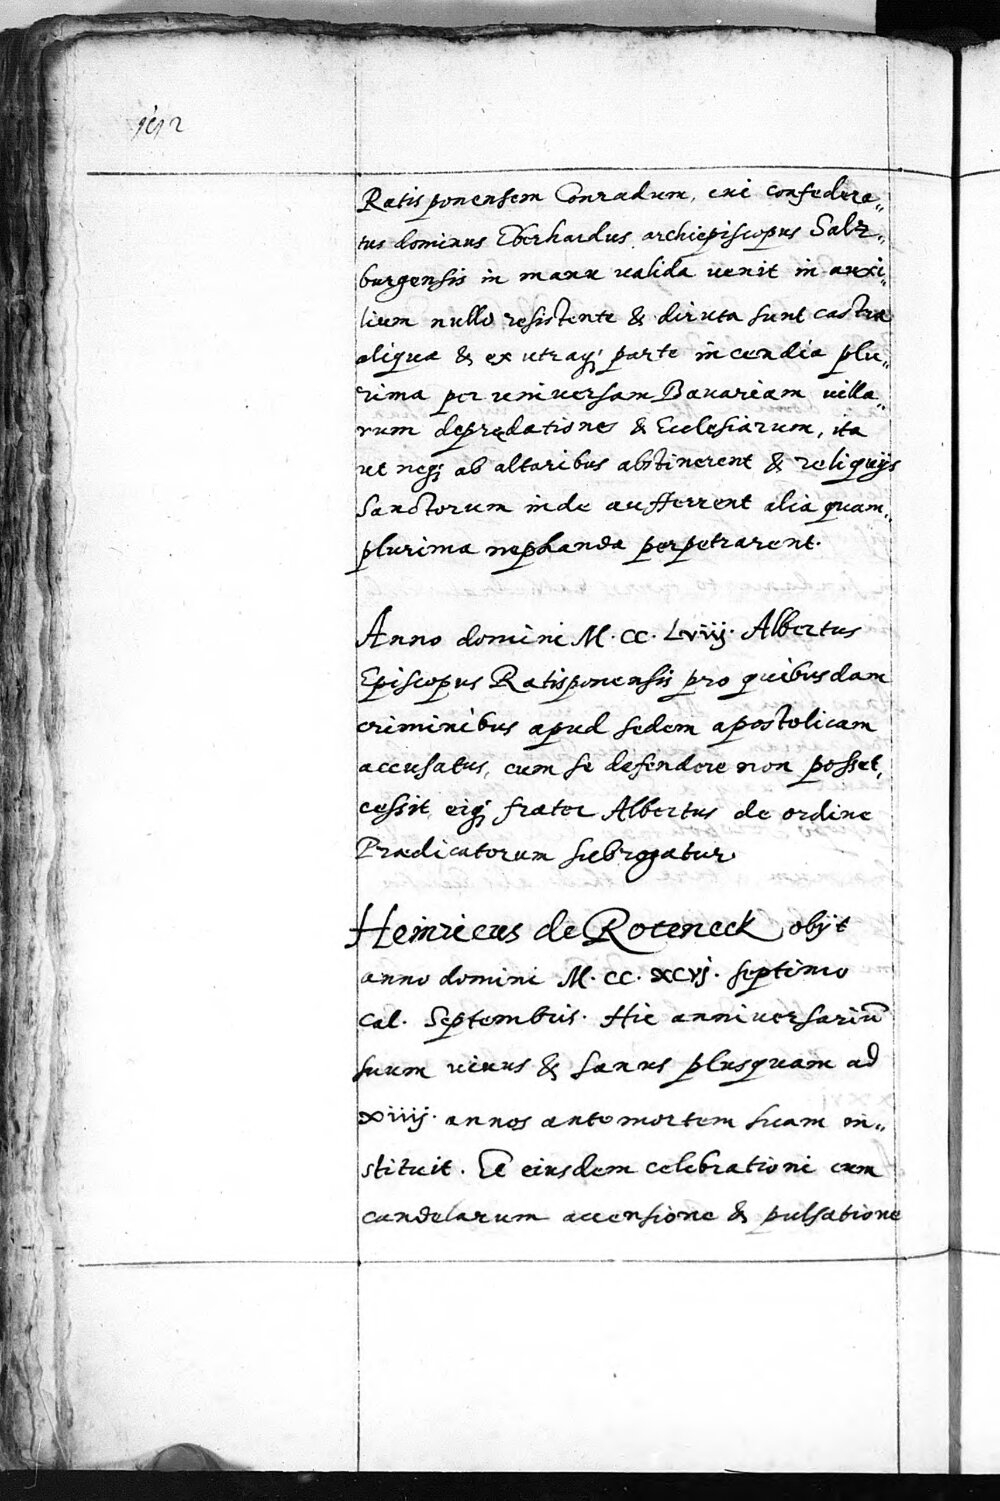 Ratisponensem Conradum, cui confedera„
tus dominus Eberhardus archiepiscopus Saltz„
burgensis in manu valida uenit in auxi„
lium nullo resistente & diruta sunt castra
aliqua & ex utraq; parte incendia plu„
rima per uniuersam Bauariam uilla„
rum depredationes & Ecclesiarum, ita
ut neq; ab altaribus abstinerent & reliquijs
Sanctorum inde aufferrent alia quam„
plurima nephanda perpetrarent.
Anno domini M. CC. Lviij. Albertus
Episcopus Ratisponensis pro quibusdam
criminibus apud sedem apostolicam
accusatus, cum se defendere non posset,
cessit, eiq; frater Albertus de ordine
Prædicatorum subrogatur.
Heinricus de Roteneck obijt
anno domini M. CC. xcvj. septimo
Cal. Septembris. Hic anniuersariū
suum uiuus & sanus plusquam ad
xiiij. annos ante mortem suam in„
stituit. Et eiusdem celebrationi cum
candelarum accensione & pulsatione